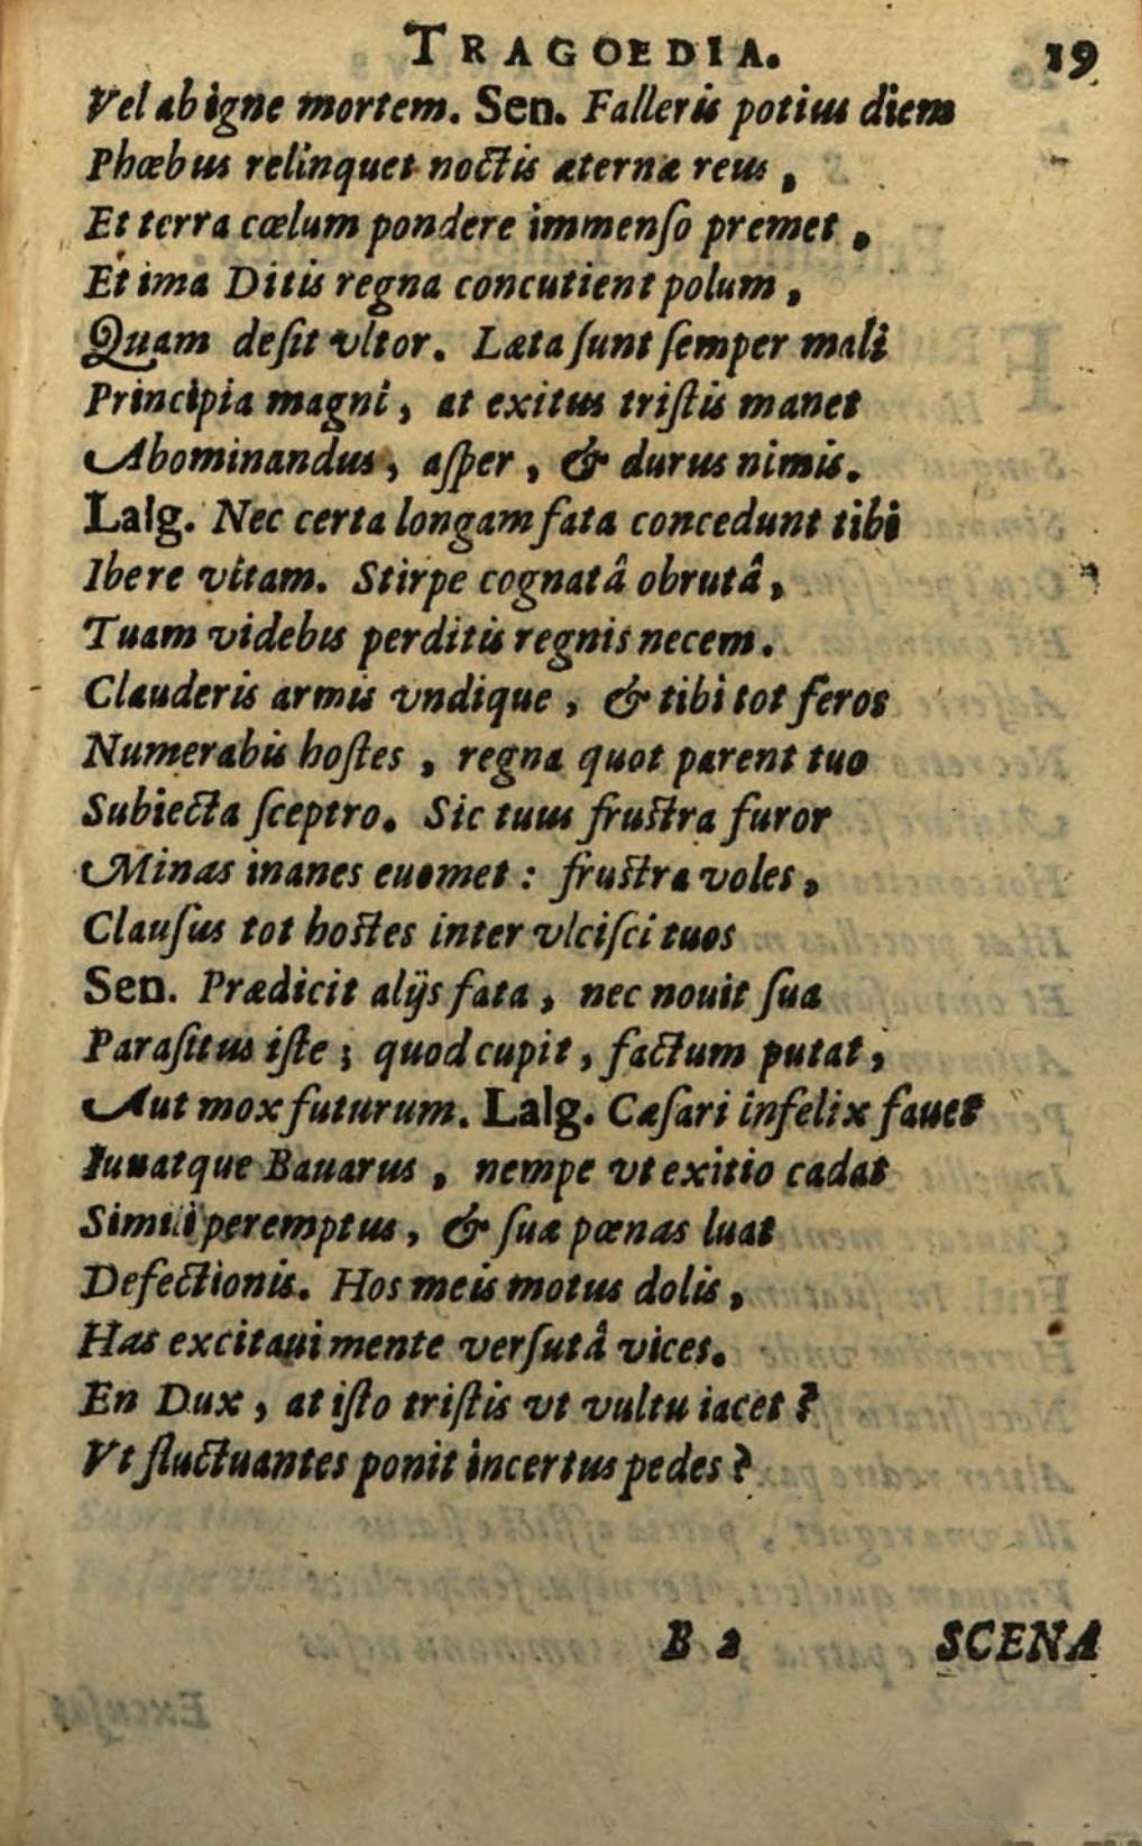 TRAGOEDIA. 19
Vel ab igne mortem. Sen. Falleris potius diem
Phœbus relinquet noctis æternæ reus,
Et terra cœlum pondere immenſo premet,
Et ima Ditis regna concutient polum,
Quam deſit vltor. Læta ſunt ſemper mali
Principia magni, at exitus triſtis manet
Abominandus, aſper, & durus nimis.
Lalg. Nec certa longam fata concedunt tibi
Ibere vitam. Stirpe cognatâ obrutâ,
Tuam videbis perditis regnis necem.
Clauderis armis vndique, & tibi tot feros
Numerabis hoſtes, regna quot parent tuo
Subiecta ſceptro. Sic tuus fruſtra furor
Minas inanes euomet: fruſtra voles,
Clauſus tot hoſtes inter vlciſci tuos
Sen. Prædicit alijs fata, nec nouit ſua
Paraſitus iſte; quod cupit, factum putat,
Aut mox futurum. Lalg. Cæſari infelix fauet
Iuuatque Bauarus, nempe vt exitio cadat
Simili peremptus, & ſuæ pœnas luat
Defectionis. Hos meis motus dolis,
Has excitaui mente verſutâ vices.
En Dux, at iſto triſtis vt vultu iacet?
Vt fluctuantes ponit incertus pedes?
B 2 SCENA